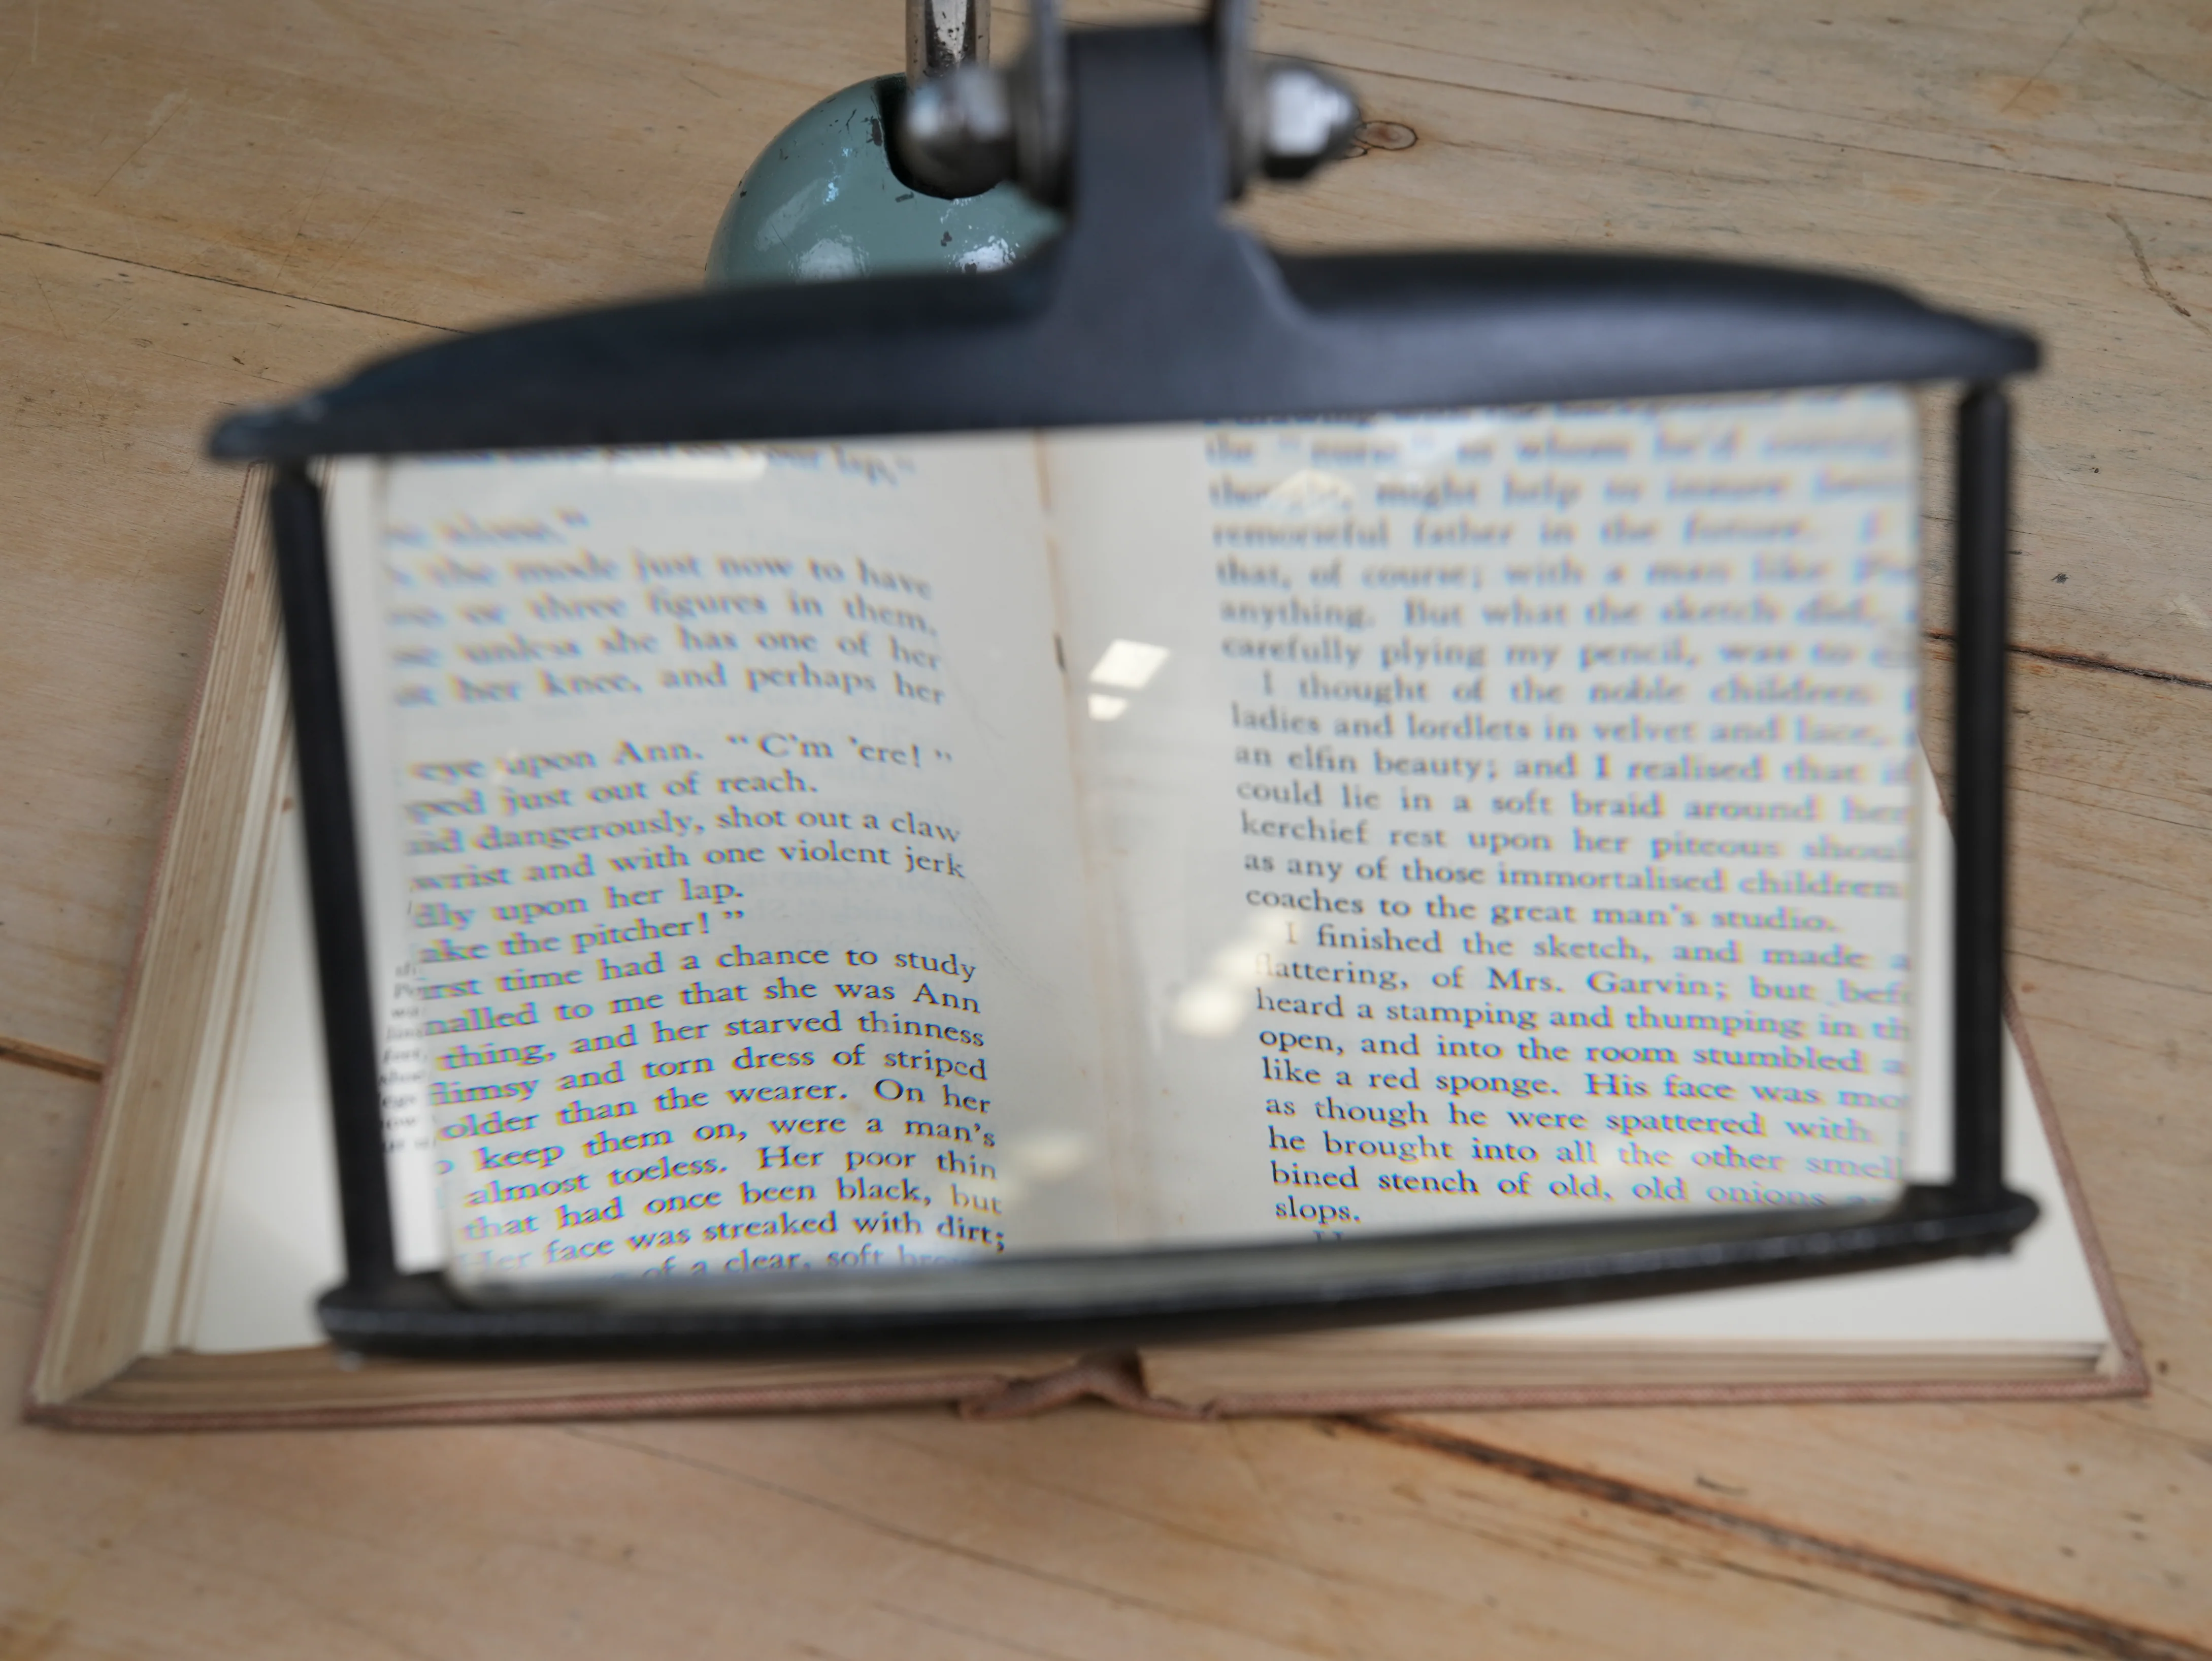 lap,"
alone."
the mode just now to have
or three figures in them,
unless she has one of her
her knee, and perhaps her
eye upon Ann. "C'm 'ere!"
ped just out of reach.
aid dangerously, shot out a claw
wrist and with one violent jerk
dly upon her lap.
ake the pitcher!"
irst time had a chance to study
nalled to me that she was Ann
thing, and her starved thinness
flimsy and torn dress of striped
older than the wearer. On her
keep them on, were a man's
almost toeless. Her poor thin
that had once been black, but
Her face was streaked with dirt;
of a clear, soft
the "nurse" to whom he'd
might help to insure
remorseful father in the future.
that, of course; with a man like
anything. But what the sketch did,
carefully plying my pencil, was to
I thought of the noble children
ladies and lordlets in velvet and lace,
an elfin beauty; and I realised that
could lie in a soft braid around her
kerchief rest upon her piteous shoul
as any of those immortalised children
coaches to the great man's studio.
I finished the sketch, and made a
flattering, of Mrs. Garvin; but bef
heard a stamping and thumping in th
open, and into the room stumbled a
like a red sponge. His face was mo
as though he were spattered with
he brought into all the other smell
bined stench of old, old onions
slops.